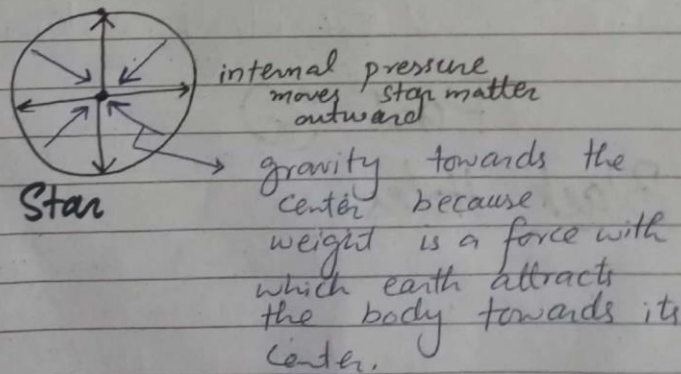 internal pressure
moves star matter
outward
gravity towards the
center because
weight is a force with
which earth attracts
the body towards its
center.
Star